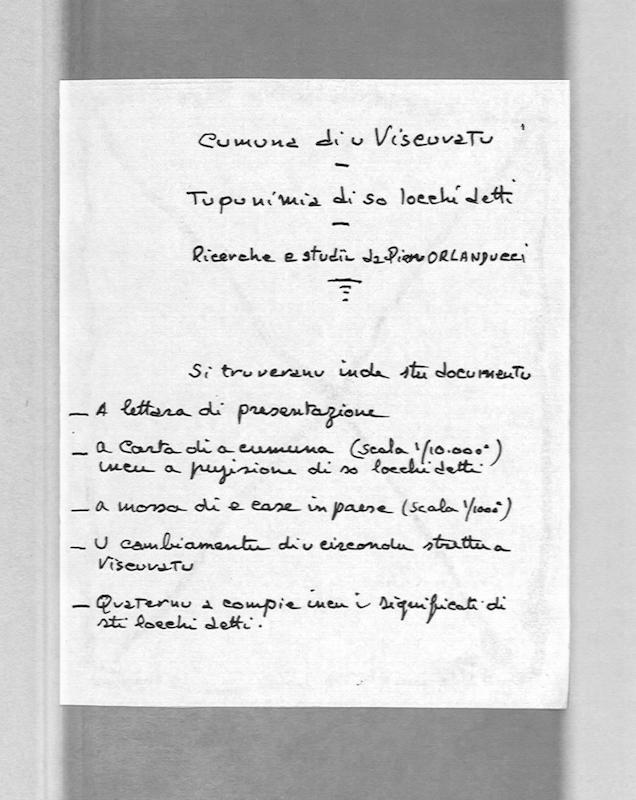 Cumuna di u Viscuvatu
Tupunimia di so locchi detti
Ricerche e studii da Pieru ORLANDUCCI
Si truveranu inde stu documentu
_ A lettara di presentazione
_ a Carta di a cumuna (scala 1/10.000°)
incu a pusizione di so locchi detti
_ a mossa di e case in paese (scala 1/1000°)
_ U cambiamentu di u circondu strettu a
Viscuvatu
_ Quaternu a compie incu i significati di
sti locchi detti.